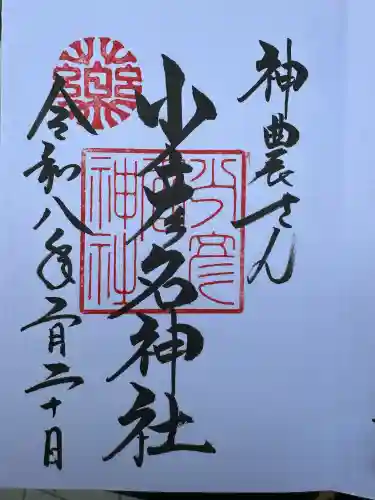 神農さん
少彦名神社
令和八年二月二十日
少彦名神社